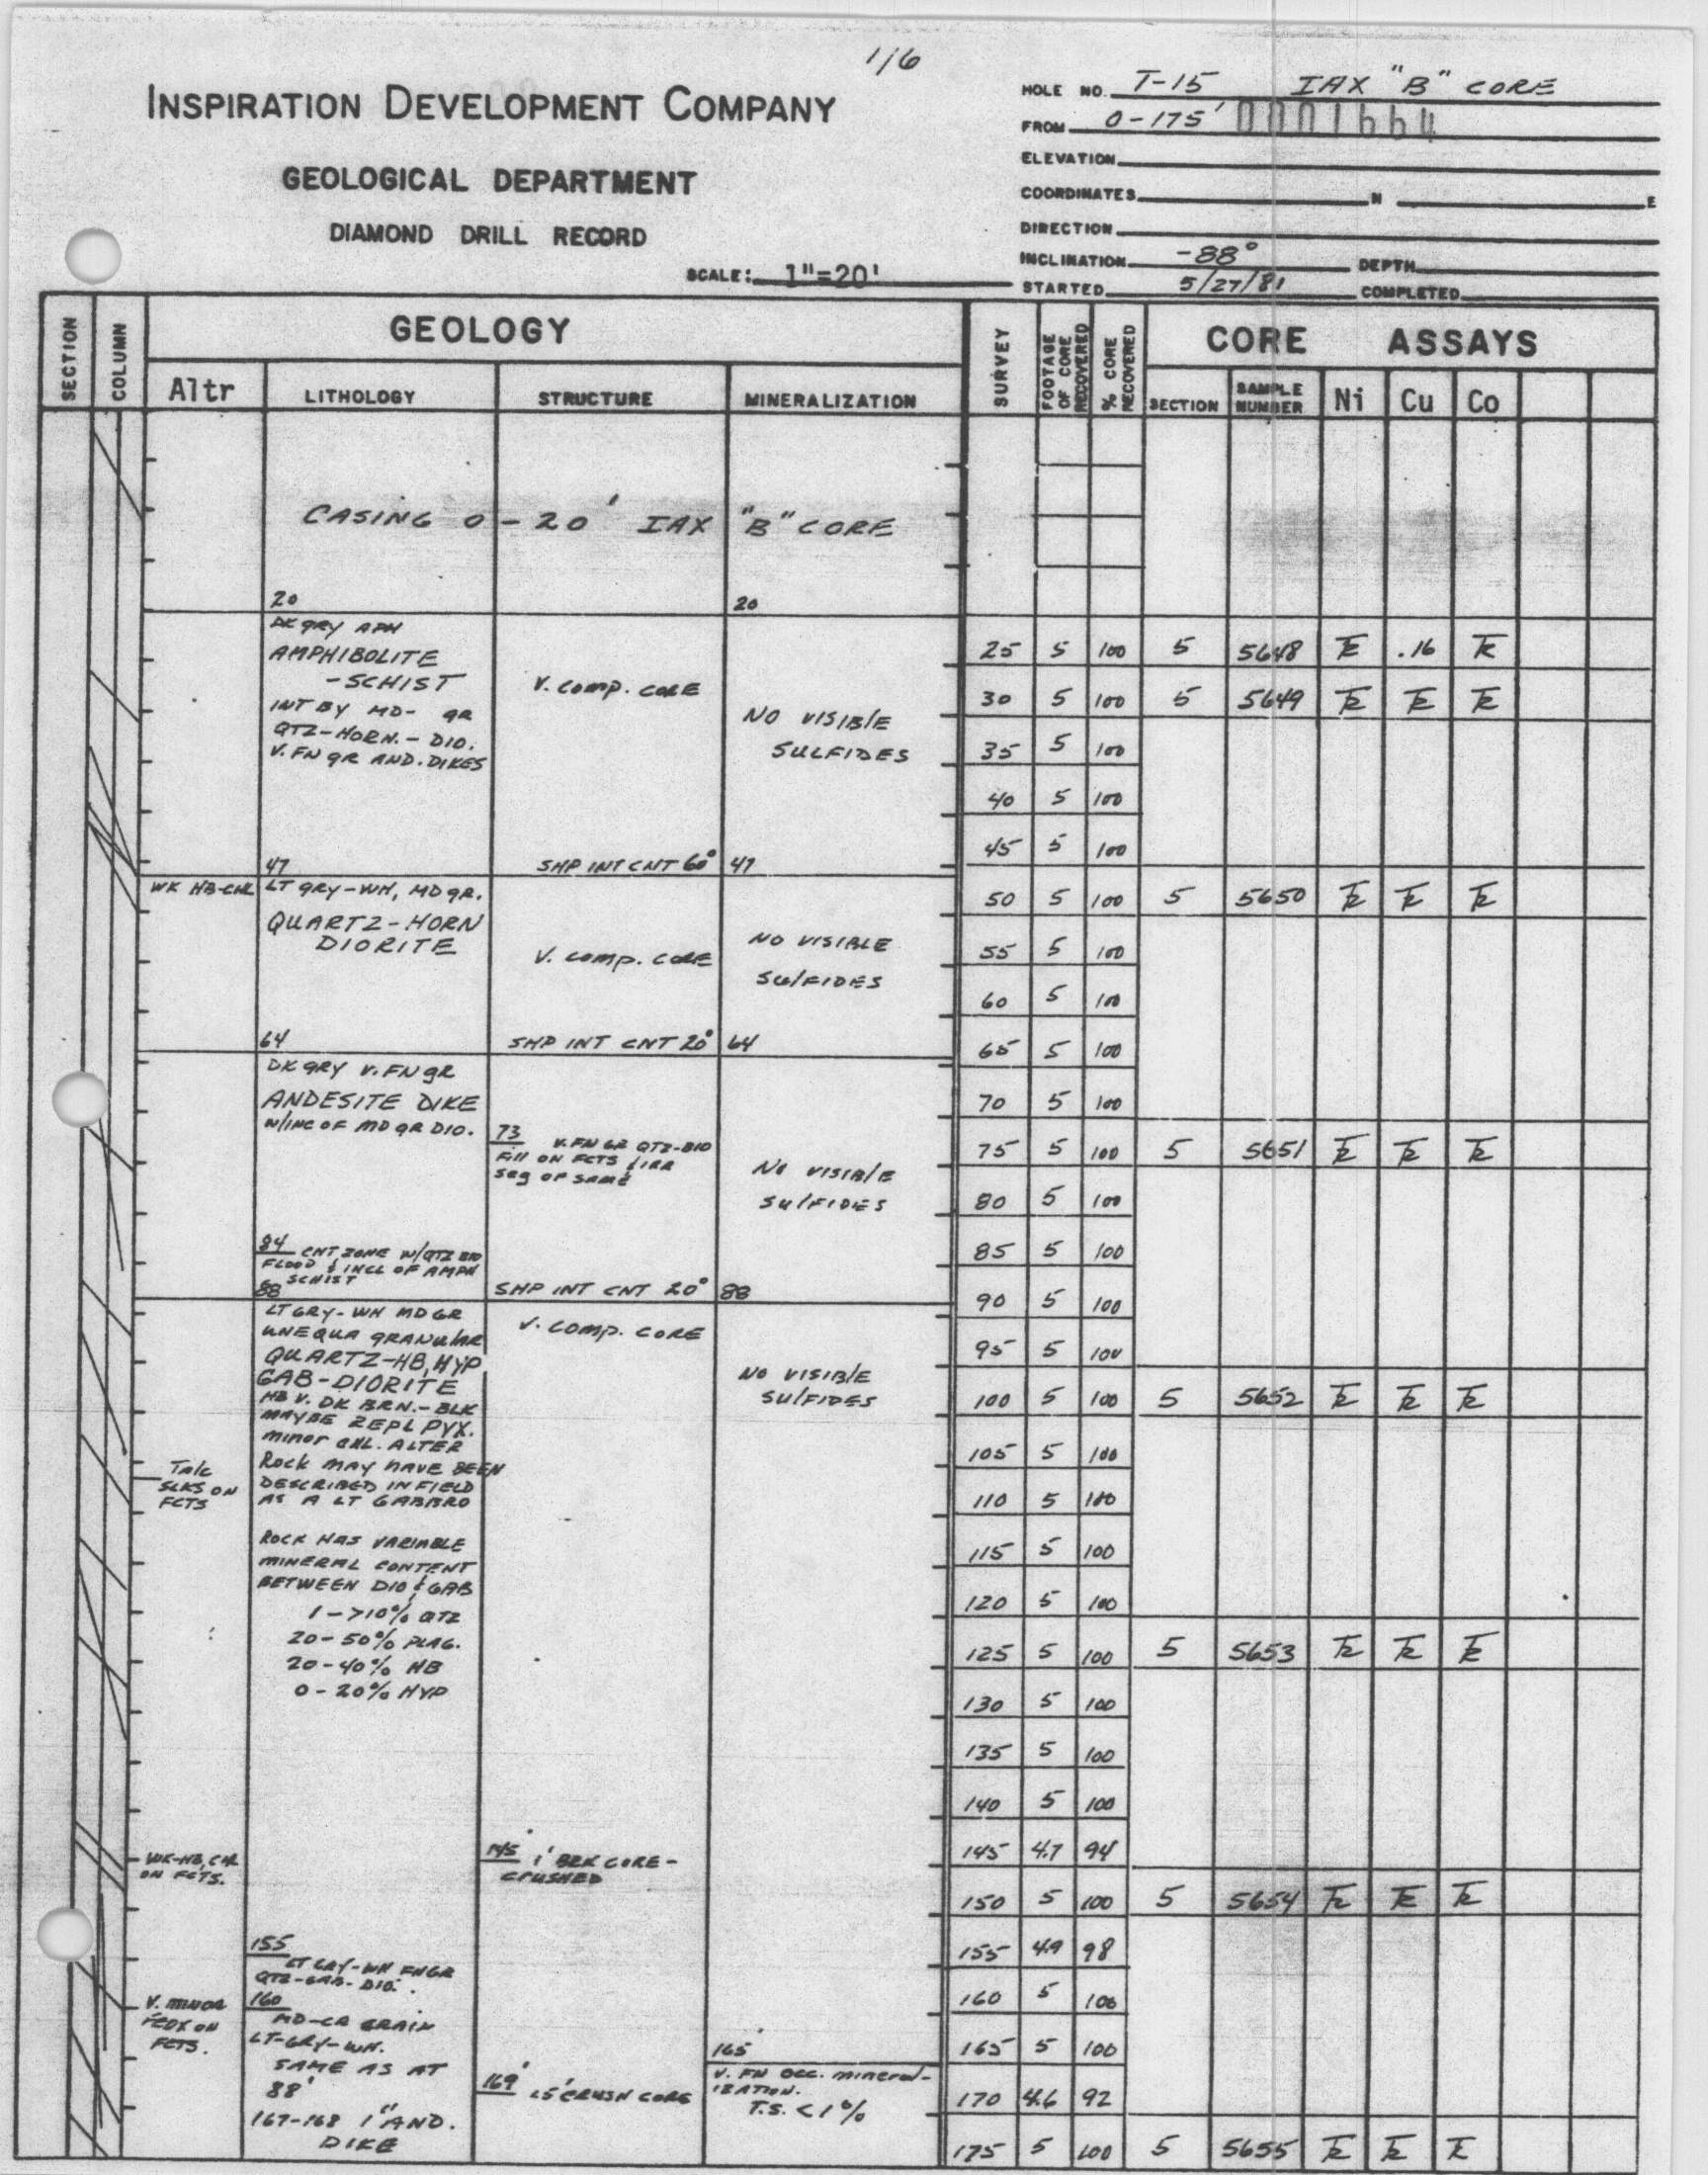 1/6
INSPIRATION DEVELOPMENT COMPANY
GEOLOGICAL DEPARTMENT
DIAMOND DRILL RECORD
SCALE: 1"=20'
HOLE NO. T-15 IAX "B" CORE
FROM 0-175' 0001664
ELEVATION
COORDINATES N E
DIRECTION
INCLINATION -88° DEPTH
STARTED 5/27/81 COMPLETED
SECTION COLUMN GEOLOGY SURVEY FOOTAGE OF CORE RECOVERED % CORE RECOVERED CORE ASSAYS
Altr LITHOLOGY STRUCTURE MINERALIZATION SECTION SAMPLE NUMBER Ni Cu Co
CASING 0-20' IAX "B" CORE
20 20
DK GRY APH
AMPHIBOLITE
-SCHIST
INT BY MD- GR
QTZ-HORN.-DIO.
V. FN GR AND. DIKES
V. COMP. CORE
NO VISIBLE
SULFIDES
47 SHP INT CNT 60° 47
WK HB-CHL
LT GRY-WH, MD GR.
QUARTZ-HORN
DIORITE
V. COMP. CORE
NO VISIBLE
SULFIDES
64 SHP INT CNT 20° 64
DK GRY V. FN GR
ANDESITE DIKE
W/INC OF MD GR DIO.
73 V. FN GR QTZ-BIO
FILL ON FCTS & IRR
SEG OF SAME
NO VISIBLE
SULFIDES
84 CNT ZONE W/QTZ BIO
FLOOD & INCL OF AMPH
SCHIST
88 SHP INT CNT 20° 88
LT GRY-WH MD GR
UNEQUA GRANULAR
QUARTZ-HB, HYP
GAB-DIORITE
HB V. DK BRN.-BLK
MAYBE REPL PYX.
MINOR CHL. ALTER
ROCK MAY HAVE BEEN
DESCRIBED IN FIELD
AS A LT GABBRO
V. COMP. CORE
NO VISIBLE
SULFIDES
TALC
SLKS ON
FCTS
ROCK HAS VARIABLE
MINERAL CONTENT
BETWEEN DIO & GAB
1->10% QTZ
20-50% PLAG.
20-40% HB
0-20% HYP
WK-HB, CHL
ON FCTS.
145 1' BRK CORE-
CRUSHED
155
LT GRY-WH FN GR
QTZ-GAB-DIO.
160
MD-CR GRAIN
LT-GRY-WH.
SAME AS AT
88'
167-168 1" AND.
DIKE
V. MINOR
FEOX ON
FCTS.
169' CRUSH CORE
165'
V. FN OCC. MINERAL-
IZATION.
T.S. <1%
25 5 100 5 5648 TR .16 TR
30 5 100 5 5649 TR TR TR
35 5 100
40 5 100
45 5 100
50 5 100 5 5650 TR TR TR
55 5 100
60 5 100
65 5 100
70 5 100
75 5 100 5 5651 TR TR TR
80 5 100
85 5 100
90 5 100
95 5 100
100 5 100 5 5652 TR TR TR
105 5 100
110 5 100
115 5 100
120 5 100
125 5 100 5 5653 TR TR TR
130 5 100
135 5 100
140 5 100
145 4.7 94
150 5 100 5 5654 TR TR TR
155 4.9 98
160 5 100
165 5 100
170 4.6 92
175 5 100 5 5655 TR TR TR